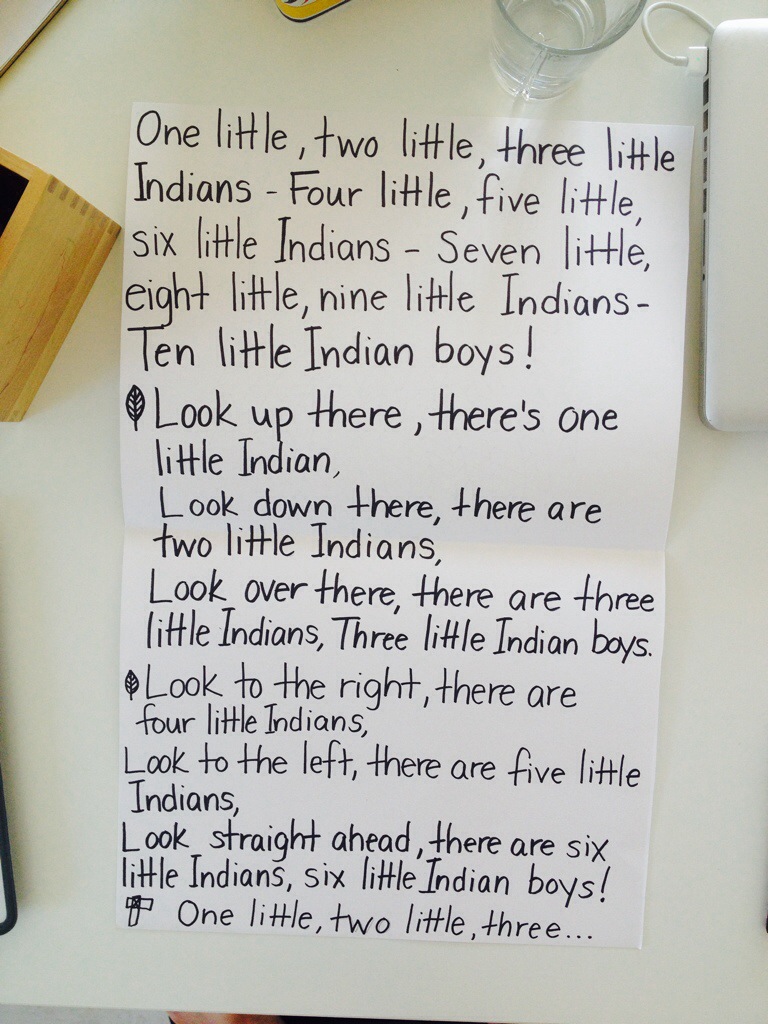 One little, two little, three little
Indians - Four little, five little,
six little Indians - Seven little,
eight little, nine little Indians-
Ten little Indian boys!
Look up there, there's one
little Indian,
Look down there, there are
two little Indians,
Look over there, there are three
little Indians, Three little Indian boys.
Look to the right, there are
four little Indians,
Look to the left, there are five little
Indians,
Look straight ahead, there are six
little Indians, six little Indian boys!
One little, two little, three...